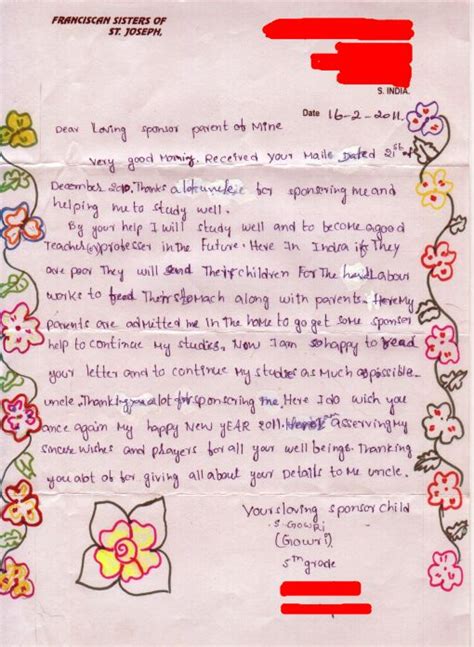 FRANCISCAN SISTERS OF
ST. JOSEPH,
S. INDIA.
Date 16-2-2011.
Dear Loving sponsor parent of Mine
Very good Morning. Received your Mails Dated 21st of
December 2010. Thanks a lot uncle for sponsering me and
helping me to study well.
By your help I will study well and to become a good
Teacher (or) professer in the Future. Here In India if They
are poor They will send Their children For The hard Labour
works to feed Their stomach along with parents. Here My
parents are admitted me In the home to go get some sponsor
help to continue My studies. Now I am so happy to read
your letter and to continue My studies as Much as possible.
uncle. Thank you a lot for sponsering me. Here I do wish you
once again My happy New yEAR 2011. asserving My
sincere wishes and prayers for all your well beings. Thanking
you abt of for giving all about your Details to Me uncle.
Yours loving sponsor child
S. GOWRI
(Gowri).
5th grade